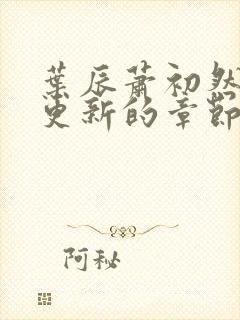 葉辰蕭初然
更新的章節
阿秘